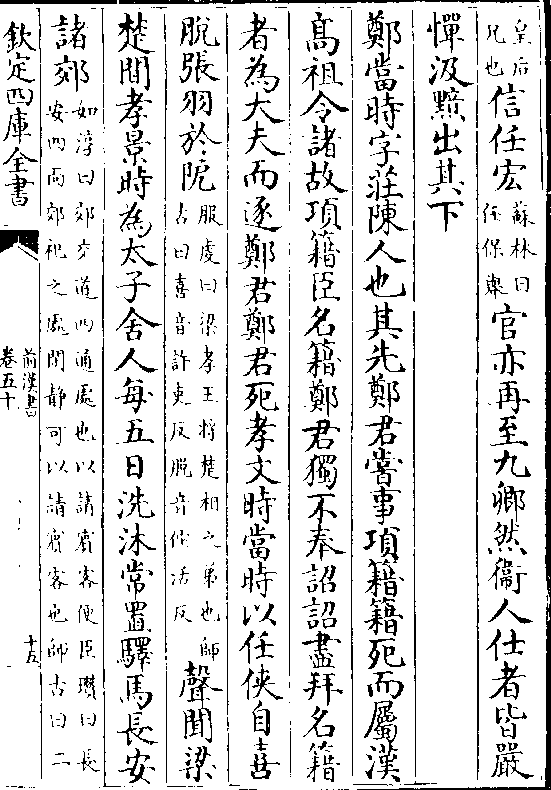 皇后
兄也信任宏蘇林曰
任保舉官亦再至九卿然衞人仕者皆嚴
憚汲黯出其下
鄭當時字莊陳人也其先鄭君嘗事項籍籍死而屬漢
高祖令諸故項籍臣名籍鄭君獨不奉詔詔盡拜名籍
者為大夫而逐鄭君鄭君死孝文時當時以任俠自喜
脫張羽於阨服虔曰梁孝王將楚相之弟也師
古曰喜音許吏反脫音佗活反聲聞梁
楚間孝景時為太子舍人每五日洗沐常置驛馬長安
諸郊如淳曰郊交道四通處也以請賓客便臣瓚曰長
安四面郊祀之處閒静可以請賓客也師古曰二
欽定四庫全書
前漢書
卷五十
十五